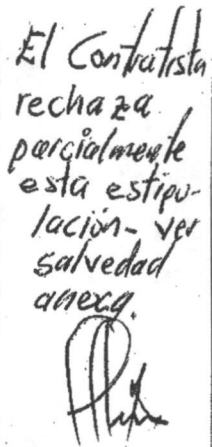 El Contratista
rechaza
parcialmente
esta estipu-
lación - ver
salvedad
anexa.